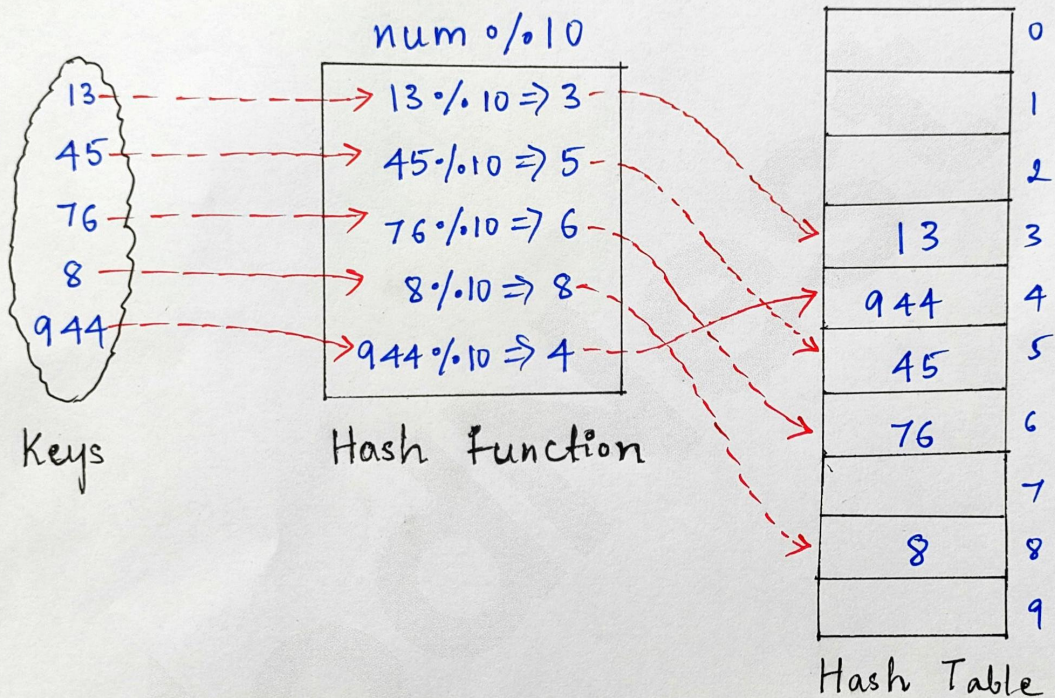 num % 10
13
45
76
8
944
Keys
13 % 10 => 3
45 % 10 => 5
76 % 10 => 6
8 % 10 => 8
944 % 10 => 4
Hash Function
0
1
2
13 3
944 4
45 5
76 6
7
8 8
9
Hash Table